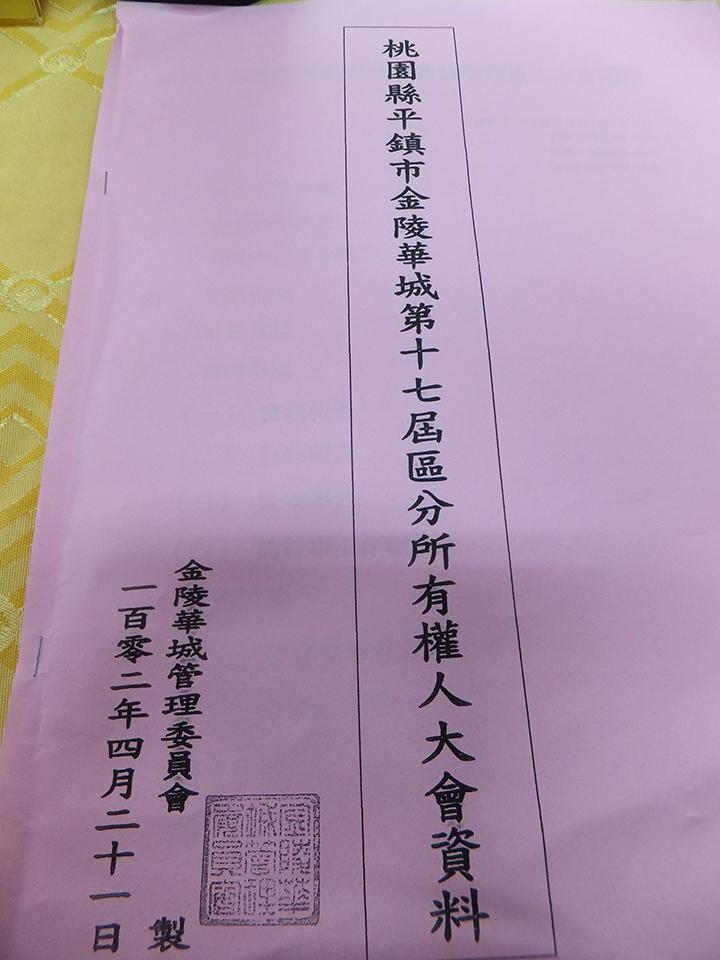 桃園縣平鎮市金陵華城第十七屆區分所有權人大會資料
金陵華城管理委員會 製
一百零二年四月二十一日